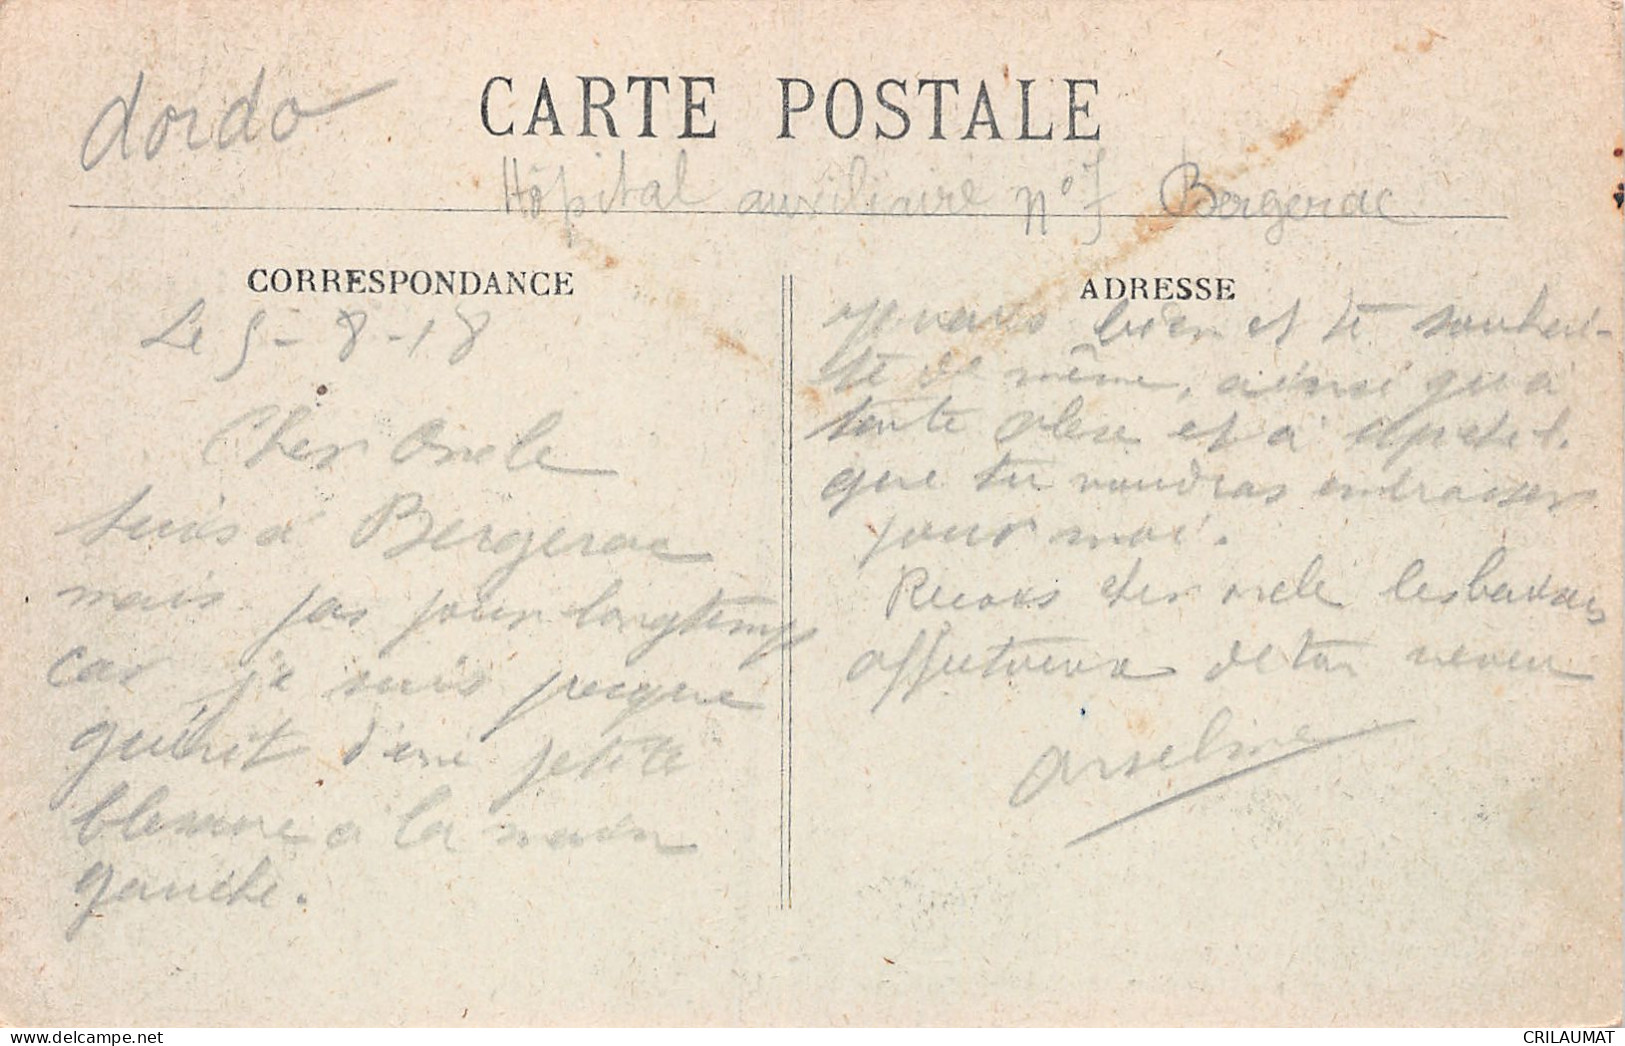 dordo
CARTE POSTALE
Hôpital auxiliaire n° 7 Bergerac
CORRESPONDANCE
Le 5-8-18
Cher Oncle
suis à Bergerac
mais pas pour longtemps
car je suis presque
guérit d'une petite
blessure à la main
gauche.
ADRESSE
Je vais bien et te souhai-
te de même, ainsi qu'à
tante et à
que tu voudras embrasser
pour moi.
Recois cher oncle les baisers
affectueux de ton neveu
Anselme
CRILAUMAT